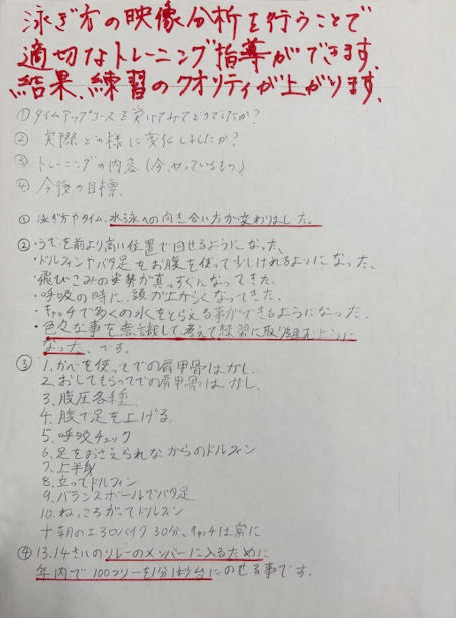 泳ぎ方の映像分析を行うことで
適切なトレーニング指導ができます。
結果、練習のクオリティが上がります。
①タイムアップコースを受けてみてどうでしたか?
② 実際どの様に変化しましたか?
③ トレーニングの内容(今、やっているもの)
④ 今後の目標
① 泳ぎ方やタイム、水泳への向き合い方が変わりました。
②・うでを前より高い位置で回せるようになった、
・ドルフィンやバタ足をお腹を使って少しけれるようになった、
・飛びこみの姿勢が真っすぐになってきた、
・呼吸の時に、頭が上がらなくなってきた、
・キャッチで多くの水をとらえる事ができるようになった、
・色々な事を意識して考えて練習に取り組むように
なった、です。
③ 1.かべを使ってでの肩甲骨はがし、
2.おしてもらってでの肩甲骨はがし、
3.腹圧各種
4.腹で足を上げる
5.呼吸チェック
6.足をおさえられながらのドルフィン
7.上半身
8.立ってドルフィン
9.バランスボールでバタ足
10.ねっころがってドルフィン
+朝のエアロバイク30分、キャッチは常に
④ 13.14さいのリレーのメンバーに入るために
年内で100フリーを1分1秒台にのせる事です。